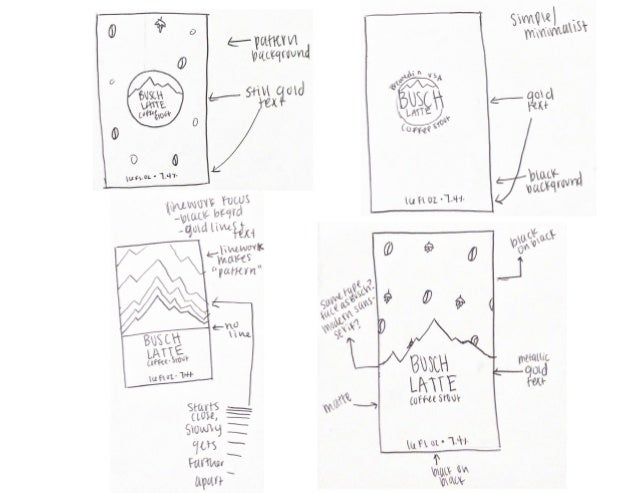 pattern
background
still gold
text
BUSCH
LATTE
COFFEE STOUT
16 FL OZ • 7.4%
simple/
minimalist
Brewed in USA
BUSCH
LATTE
COFFEE STOUT
gold
text
black
background
16 FL OZ • 7.4%
linework focus
-black bkgrd
-gold lines &
text
linework
makes
"pattern"
no
line
BUSCH
LATTE
COFFEE • STOUT
16 FL OZ • 7.4%
starts
close,
slowly
gets
farther
apart
black
on black
same type
face as Busch?
modern sans-
serif?
BUSCH
LATTE
COFFEE STOUT
metallic
gold
text
matte
16 FL OZ • 7.4%
black on
black